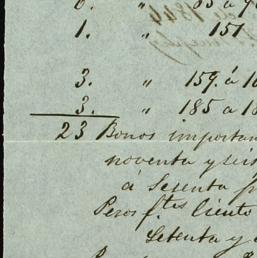 6. " 85 a 9
1. " 151
3. " 159. á 16
3. " 185 a 18
23 Bonos importan
noventa y seis
á Sesenta p
Pesos f.tes Ciento
Setenta y